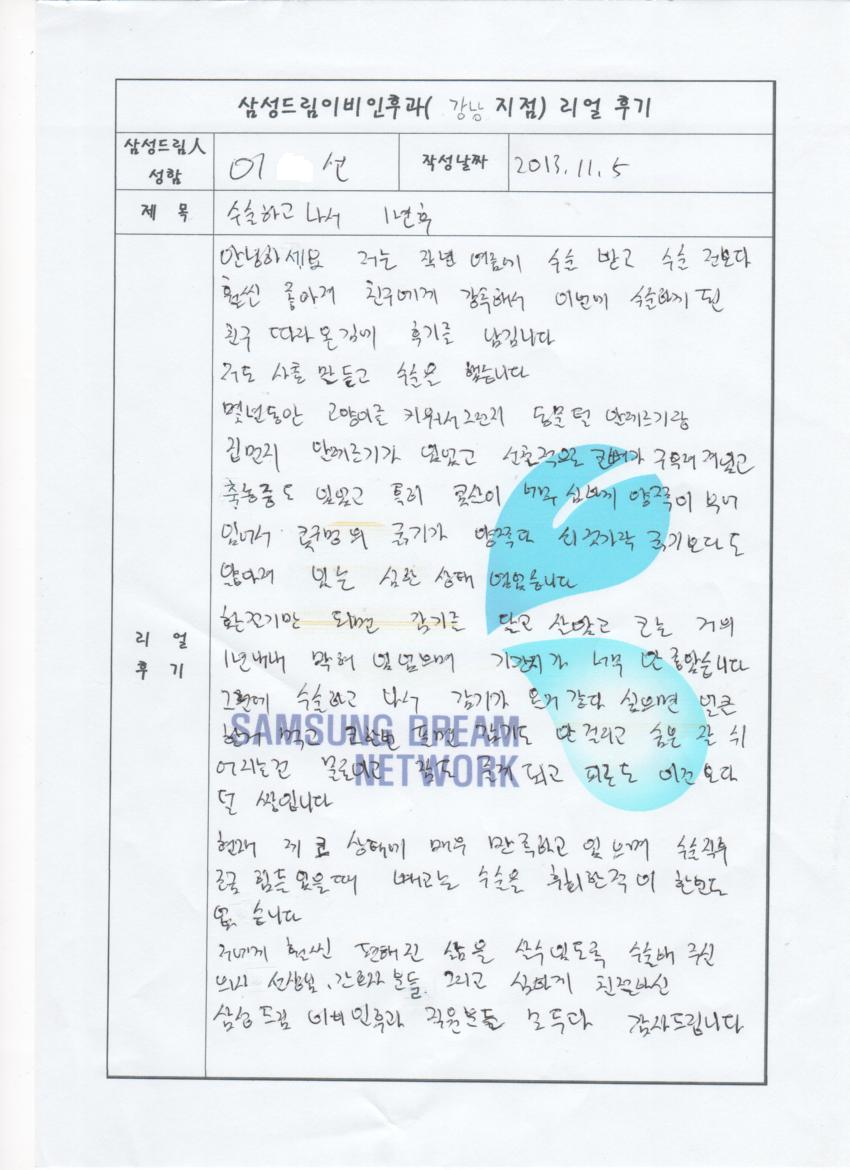 삼성드림이비인후과( 강남 지점) 리얼 후기
삼성드림人 성함
이 선
작성날짜
2013.11.5
제 목
수술하고 나서 1년후
리 얼 후 기
안녕하세요 저는 작년 여름에 수술 받고 수술 전보다
훨씬 좋아져 친구에게 강추해서 이번에 수술하게 된
친구 따라온김에 후기를 남깁니다
저도 사촌 말듣고 수술을 했습니다
몇년동안 고양이를 키워서그런지 동물털 알레르기랑
집먼지 알레르기가 있었고 선천적으로 코뼈가 구부러져있고
축농증도 있었고 특히 콧살이 너무 심하게 양쪽이 부어
있어서 콧구멍의 굵기가 양쪽다 쇠젓가락 굵기보다도
얇아져 있는 심한 상태 였었습니다
환절기만 되면 감기를 달고 살았고 코는 거의
1년내내 막혀 있었으며 기관지가 너무 안 좋았습니다
그런데 수술하고 나서 감기가 온거 같다 싶으면 얼른
한번 풀면 감기도 안 걸리고 숨을 잘 쉬
어지는건 물론이고 잠도 즐겨 되고 피곤도 이전보다
덜 쌓입니다
현재 제 코 상태에 매우 만족하고 있으며 수술직후
조금 힘들었을때 빼고는 수술을 후회한적이 한번도
없습니다
저에게 훨씬 편해진 삶을 살수있도록 수술해 주신
의사 선생님, 간호사 분들, 그리고 심하게 친절하신
삼성드림 이비인후과 직원분들 모두다 감사드립니다
SAMSUNG DREAM
NETWORK